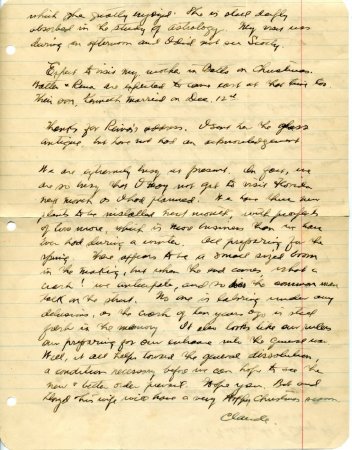 which she greatly enjoyed. She is still deeply
absorbed in the study of astrology. My visit was
during an afternoon and I did not see
Expect to visit my mother in on Christmas.
+ Rena are expected to come east at that time too
Their son, Kenneth married on Dec. 12th
Thanks for address. I sent her the glass
antique, but have not had an acknowledgement
We are extremely busy at present. In fact, we
are so busy that I may not get to visit Florida
next month as I had planned. We have three new
plants to be installed next month, with prospects
of two more, which is more business than we have
ever had during a winter. All preparing for the
spring. There appears to be a small sized boom
in the making, but when the end comes, what a
crash! we anticipate, and so does the common man
back on the street. No one is laboring under any
delusions, as the crash of ten years ago is still
fresh in the memory. It also looks like our rulers
are preparing for our entrance into the general war
Well, it all helps toward the general dissolution,
a condition necessary before we can hope to see the
new + better order prevail. Hope you, Bob and
his wife will have a very Happy Christmas season
Claude.